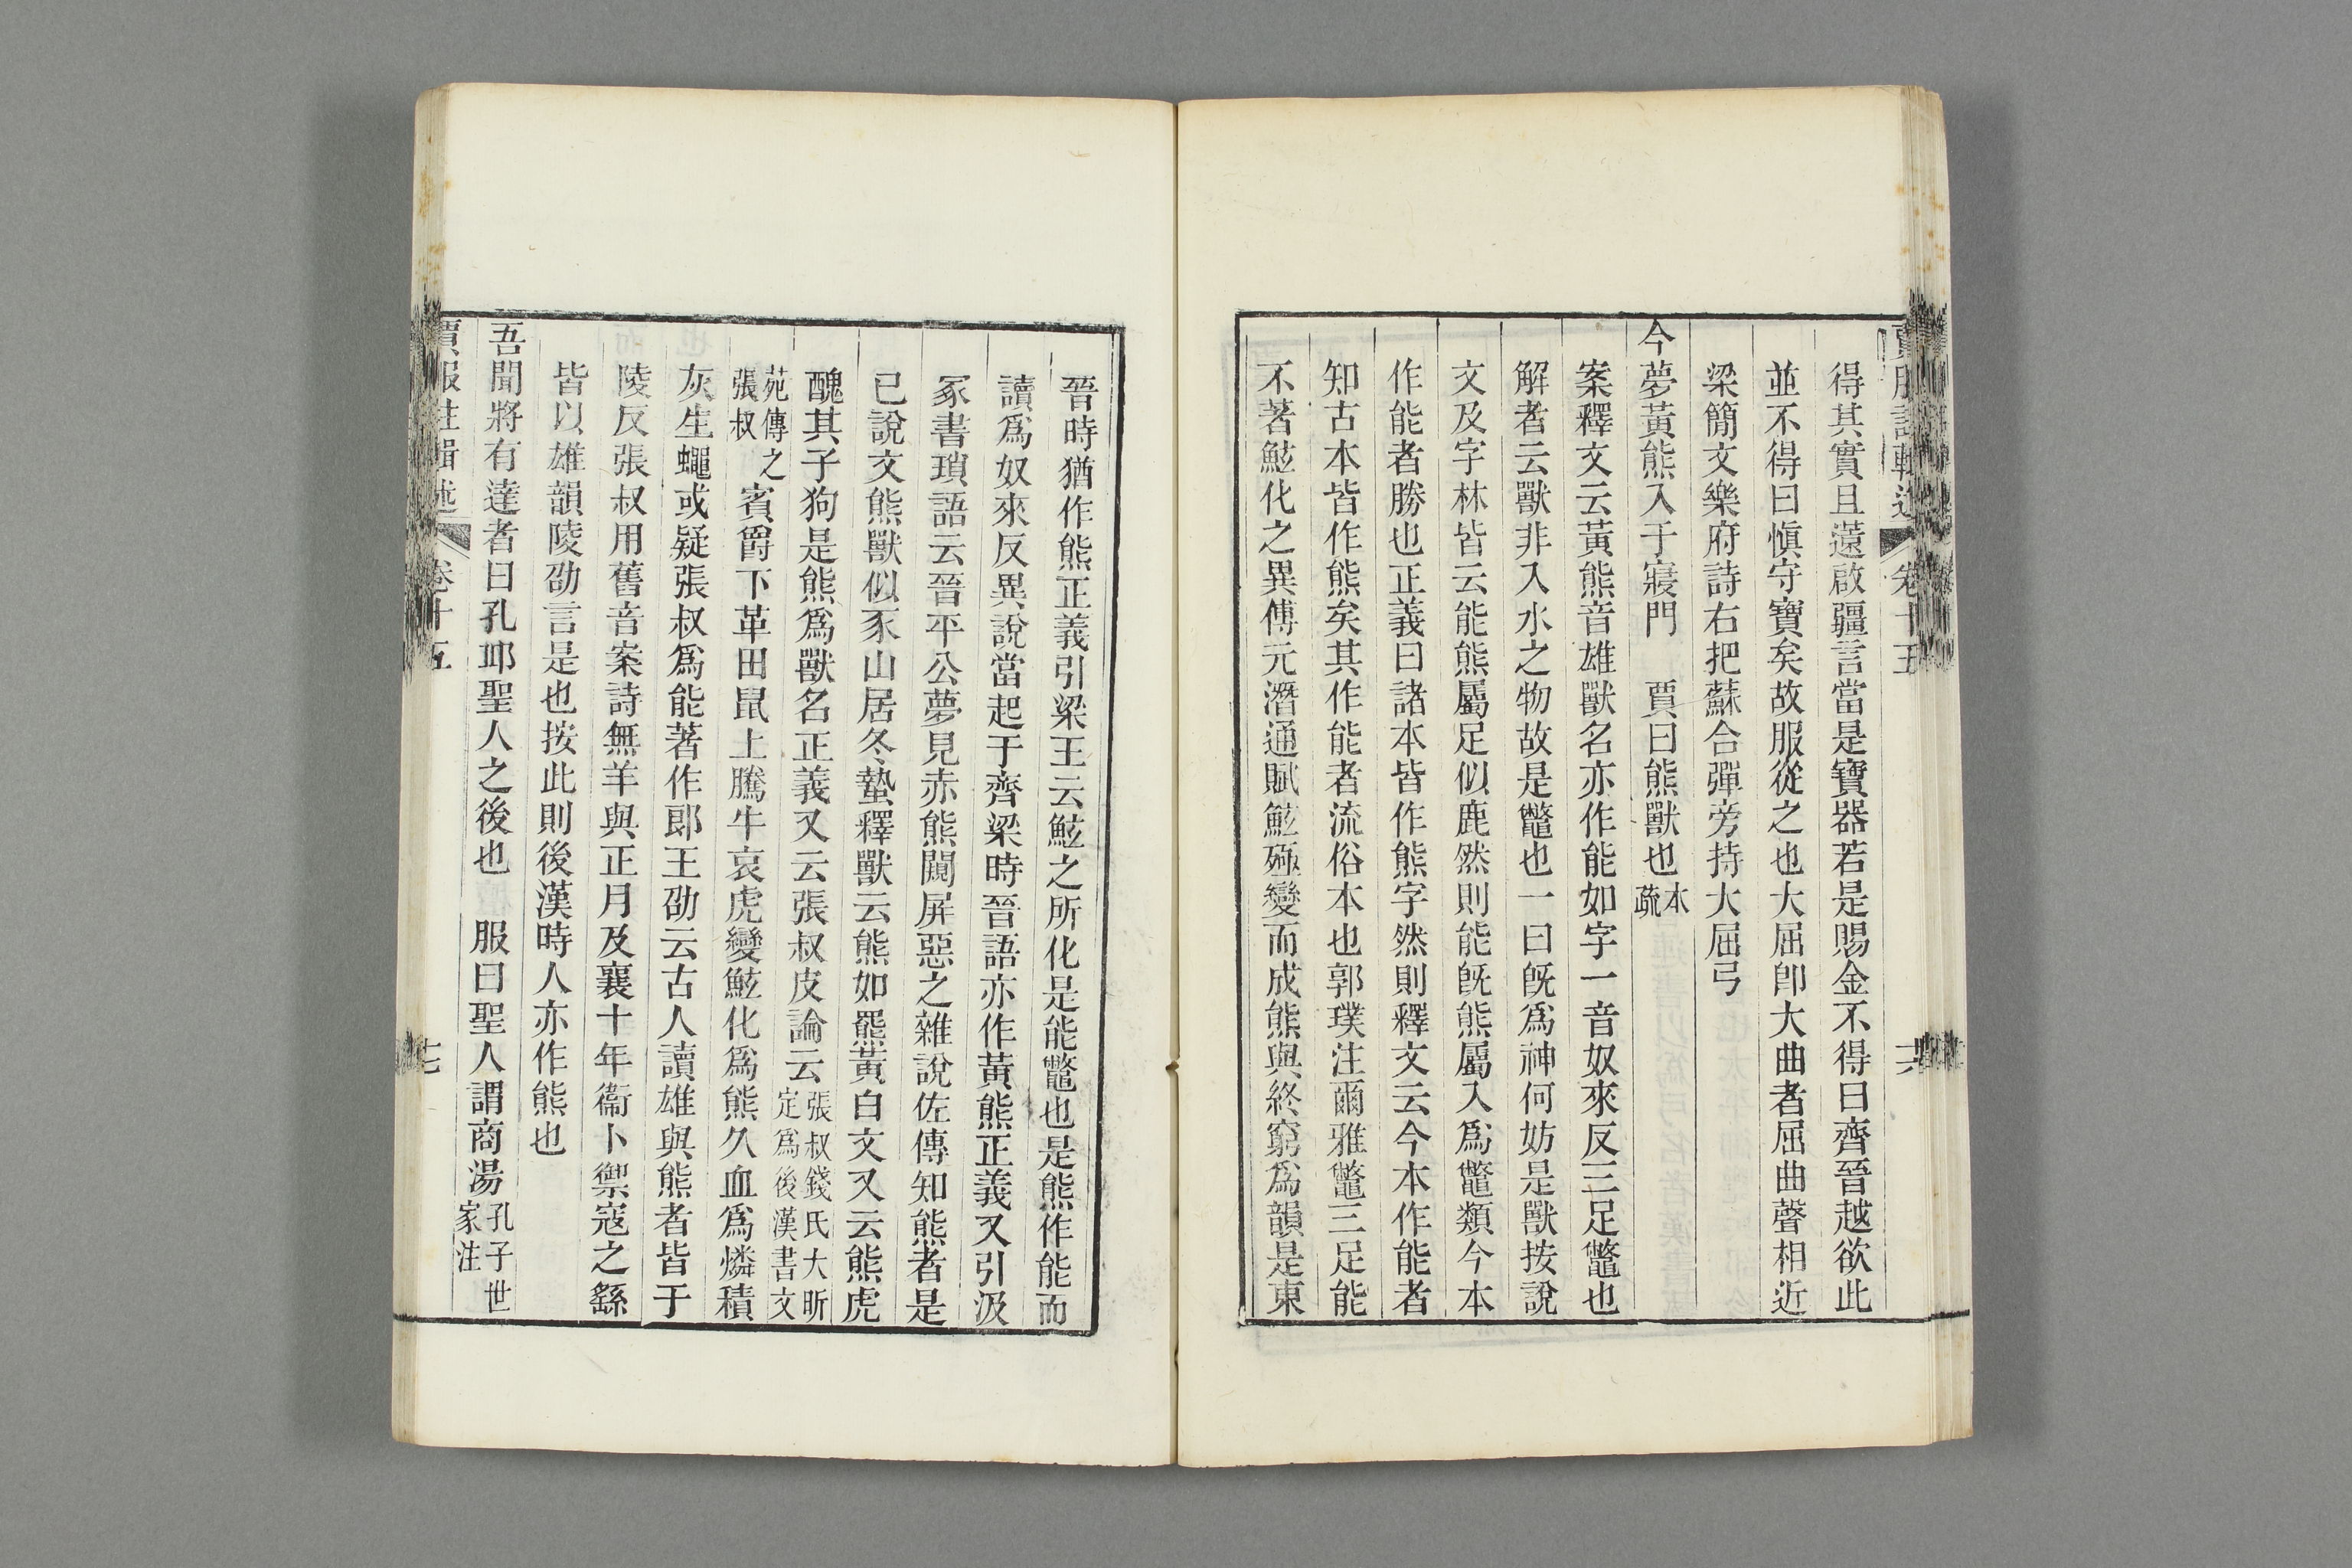 賈服註輯述 卷十五 十六
得其實且薳啟疆言當是寶器若是賜金不得曰齊晉越欲此
並不得曰愼守寶矣故服從之也大屈卽大曲者屈曲聲相近
梁簡文樂府詩右把蘇合彈旁持大屈弓
今夢黃熊入于寢門 賈曰熊獸也本疏
案釋文云黃熊音雄獸名亦作能如字一音奴來反三足鼈也
解者云獸非入水之物故是鼈也一曰旣爲神何妨是獸按說
文及字林皆云能熊屬足似鹿然則能旣熊屬又爲鼈類今本
作能者勝也正義曰諸本皆作熊字然則釋文云今本作能者
知古本皆作熊矣其作能者流俗本也郭璞注爾雅鼈三足能
不著鮌化之異傅元潛通賦鮌殛變而成熊與終窮爲韻是東
晉時猶作熊正義引梁王云鮌之所化是能鼈也是熊作能而
讀爲奴來反異說當起于齊梁時晉語亦作黃熊正義又引汲
冢書瑣語云晉平公夢見赤熊闚屏惡之雜說佐傳知熊者是
已說文熊獸似豕山居冬蟄釋獸云熊如羆黃白文又云熊虎
醜其子狗是熊爲獸名正義又云張叔皮論云張叔錢氏大昕定爲後漢書文
苑傳之張叔賓爵下革田鼠上騰牛哀虎變鮌化爲熊久血爲燐積
灰生蠅或疑張叔爲能著作郞王劭云古人讀雄與熊者皆于
陵反張叔用舊音案詩無羊與正月及襄十年衞卜禦寇之繇
皆以雄韻陵劭言是也按此則後漢時人亦作熊也
吾聞將有達者曰孔邱聖人之後也 服曰聖人謂商湯孔子世家注
賈服註輯述 卷十五 十七